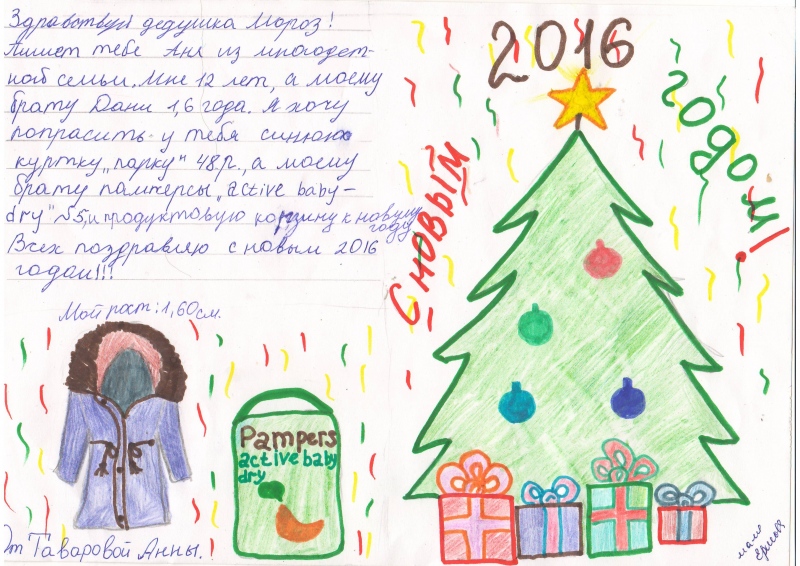 Здравствуй дедушка Мороз!
Пишет тебе Аня из многодет-
ной семьи. Мне 12 лет, а моему
брату Дани 1,6 года. Я хочу
попрасить у тебя синюю
куртку „парку" 48.р., а моему
брату памперсы „active baby-
dry" №5, и продуктовую корзину к новому
году.
Всех поздравляю с новым 2016
годом!!!
Мой рост: 1,60 см.
Pampers
active baby
dry
От Таваровой Анны.
2016
С новым
годом!